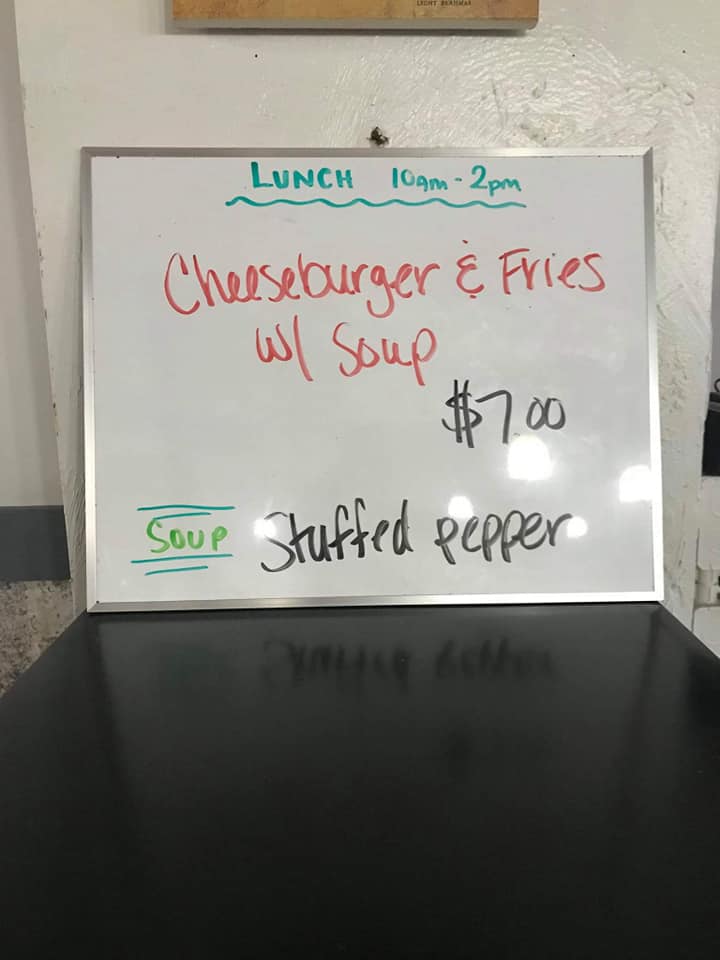 LIGHT BRAHMAS
LUNCH 10am - 2pm
Cheeseburger & Fries
w/ Soup
$7.00
SOUP Stuffed pepper